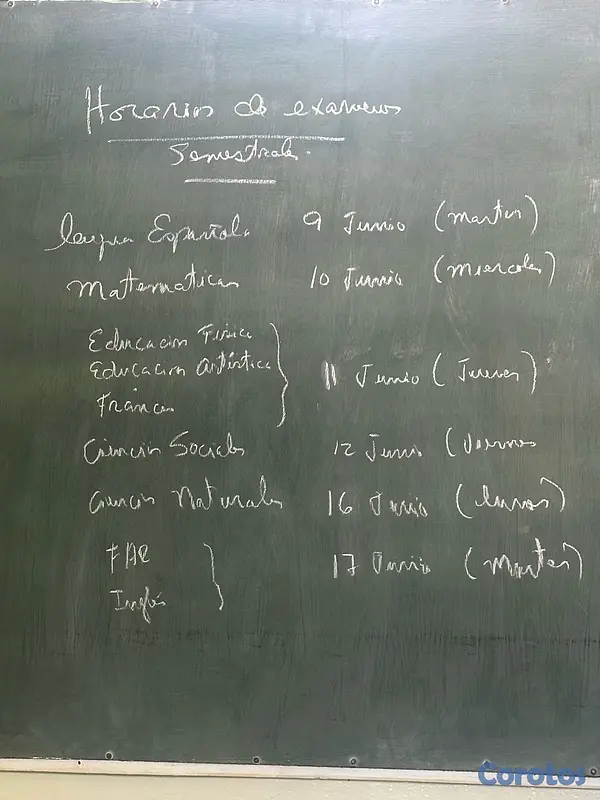 Horarios de examenes
Semestrales.
lengua Española 9 Junio (martes)
Matematicas 10 Junio (miercoles)
Educacion Fisica
Educacion artística
Frances
11 Junio (Jueves)
Ciencias Sociales 12 Junio (viernes
Ciencias Naturales 16 Junio (lunes)
FIHR 17 Junio (Martes)
Inglés
Corotos